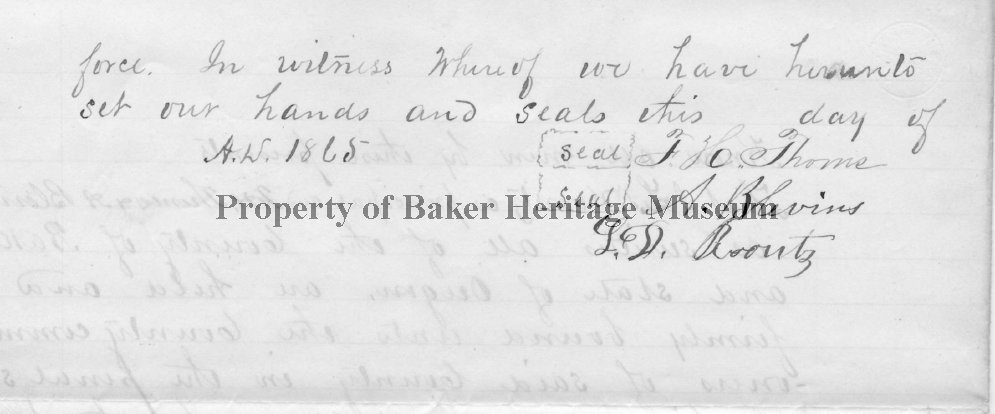 force. In witness Whereof we have hereunto
set our hands and seals this day of
A.D. 1865 Seal F. H. Thome
Seal A. Blevins
Property of Baker Heritage Museum